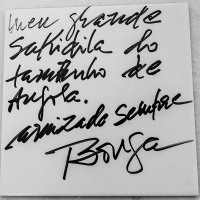 meu grande
Sakidila do
tamanho de
Angola.
amizade sempre
Bonga